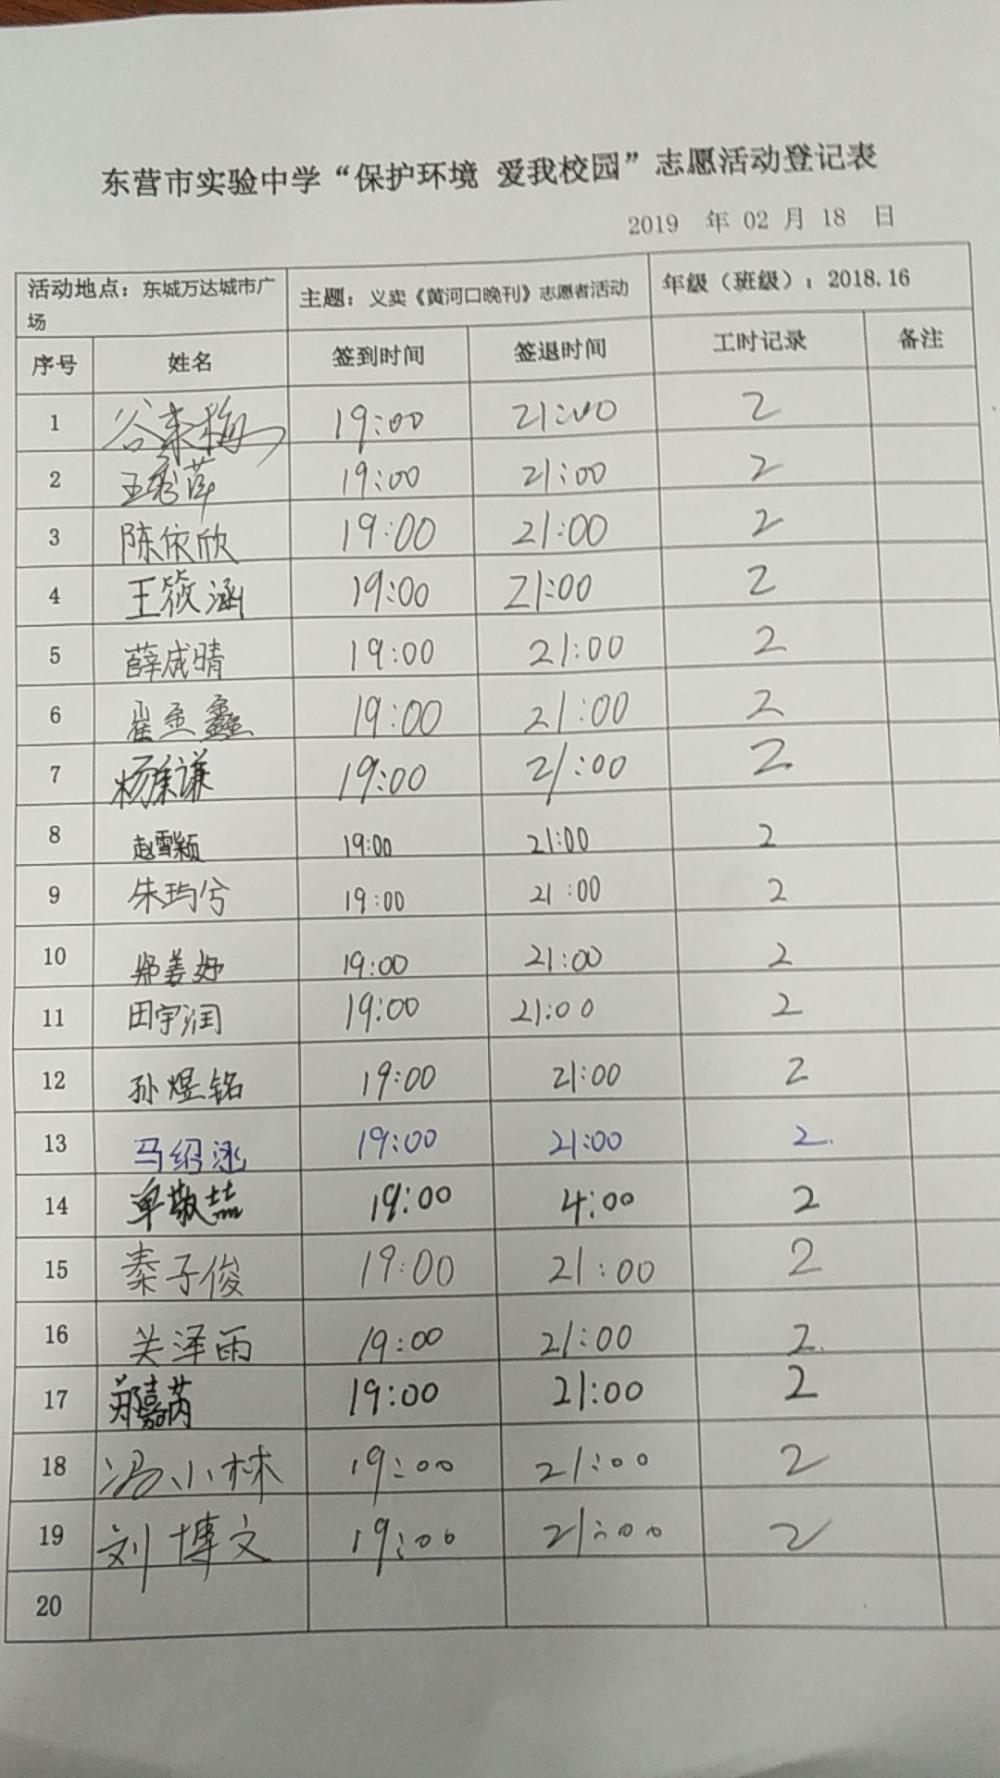 东营市实验中学“保护环境 爱我校园”志愿活动登记表
2019 年 02 月 18 日
活动地点：东城万达城市广场 主题：义卖《黄河口晚刊》志愿者活动 年级（班级）：2018.16
序号 姓名 签到时间 签退时间 工时记录 备注
1 谷秉梅 19:00 21:00 2
2 王秀萍 19:00 21:00 2
3 陈依欣 19:00 21:00 2
4 王筱涵 19:00 21:00 2
5 薛成晴 19:00 21:00 2
6 崔孟鑫 19:00 21:00 2
7 杨秉谦 19:00 21:00 2
8 赵雪颖 19:00 21:00 2
9 朱玙兮 19:00 21:00 2
10 郑姜妤 19:00 21:00 2
11 田宇润 19:00 21:00 2
12 孙煜铭 19:00 21:00 2
13 马绍涵 19:00 21:00 2.
14 单敬喆 19:00 4:00 2
15 秦子俊 19:00 21:00 2
16 关泽雨 19:00 21:00 2.
17 郑嘉芮 19:00 21:00 2
18 冯小林 19:00 21:00 2
19 刘博文 19:00 21:00 2
20